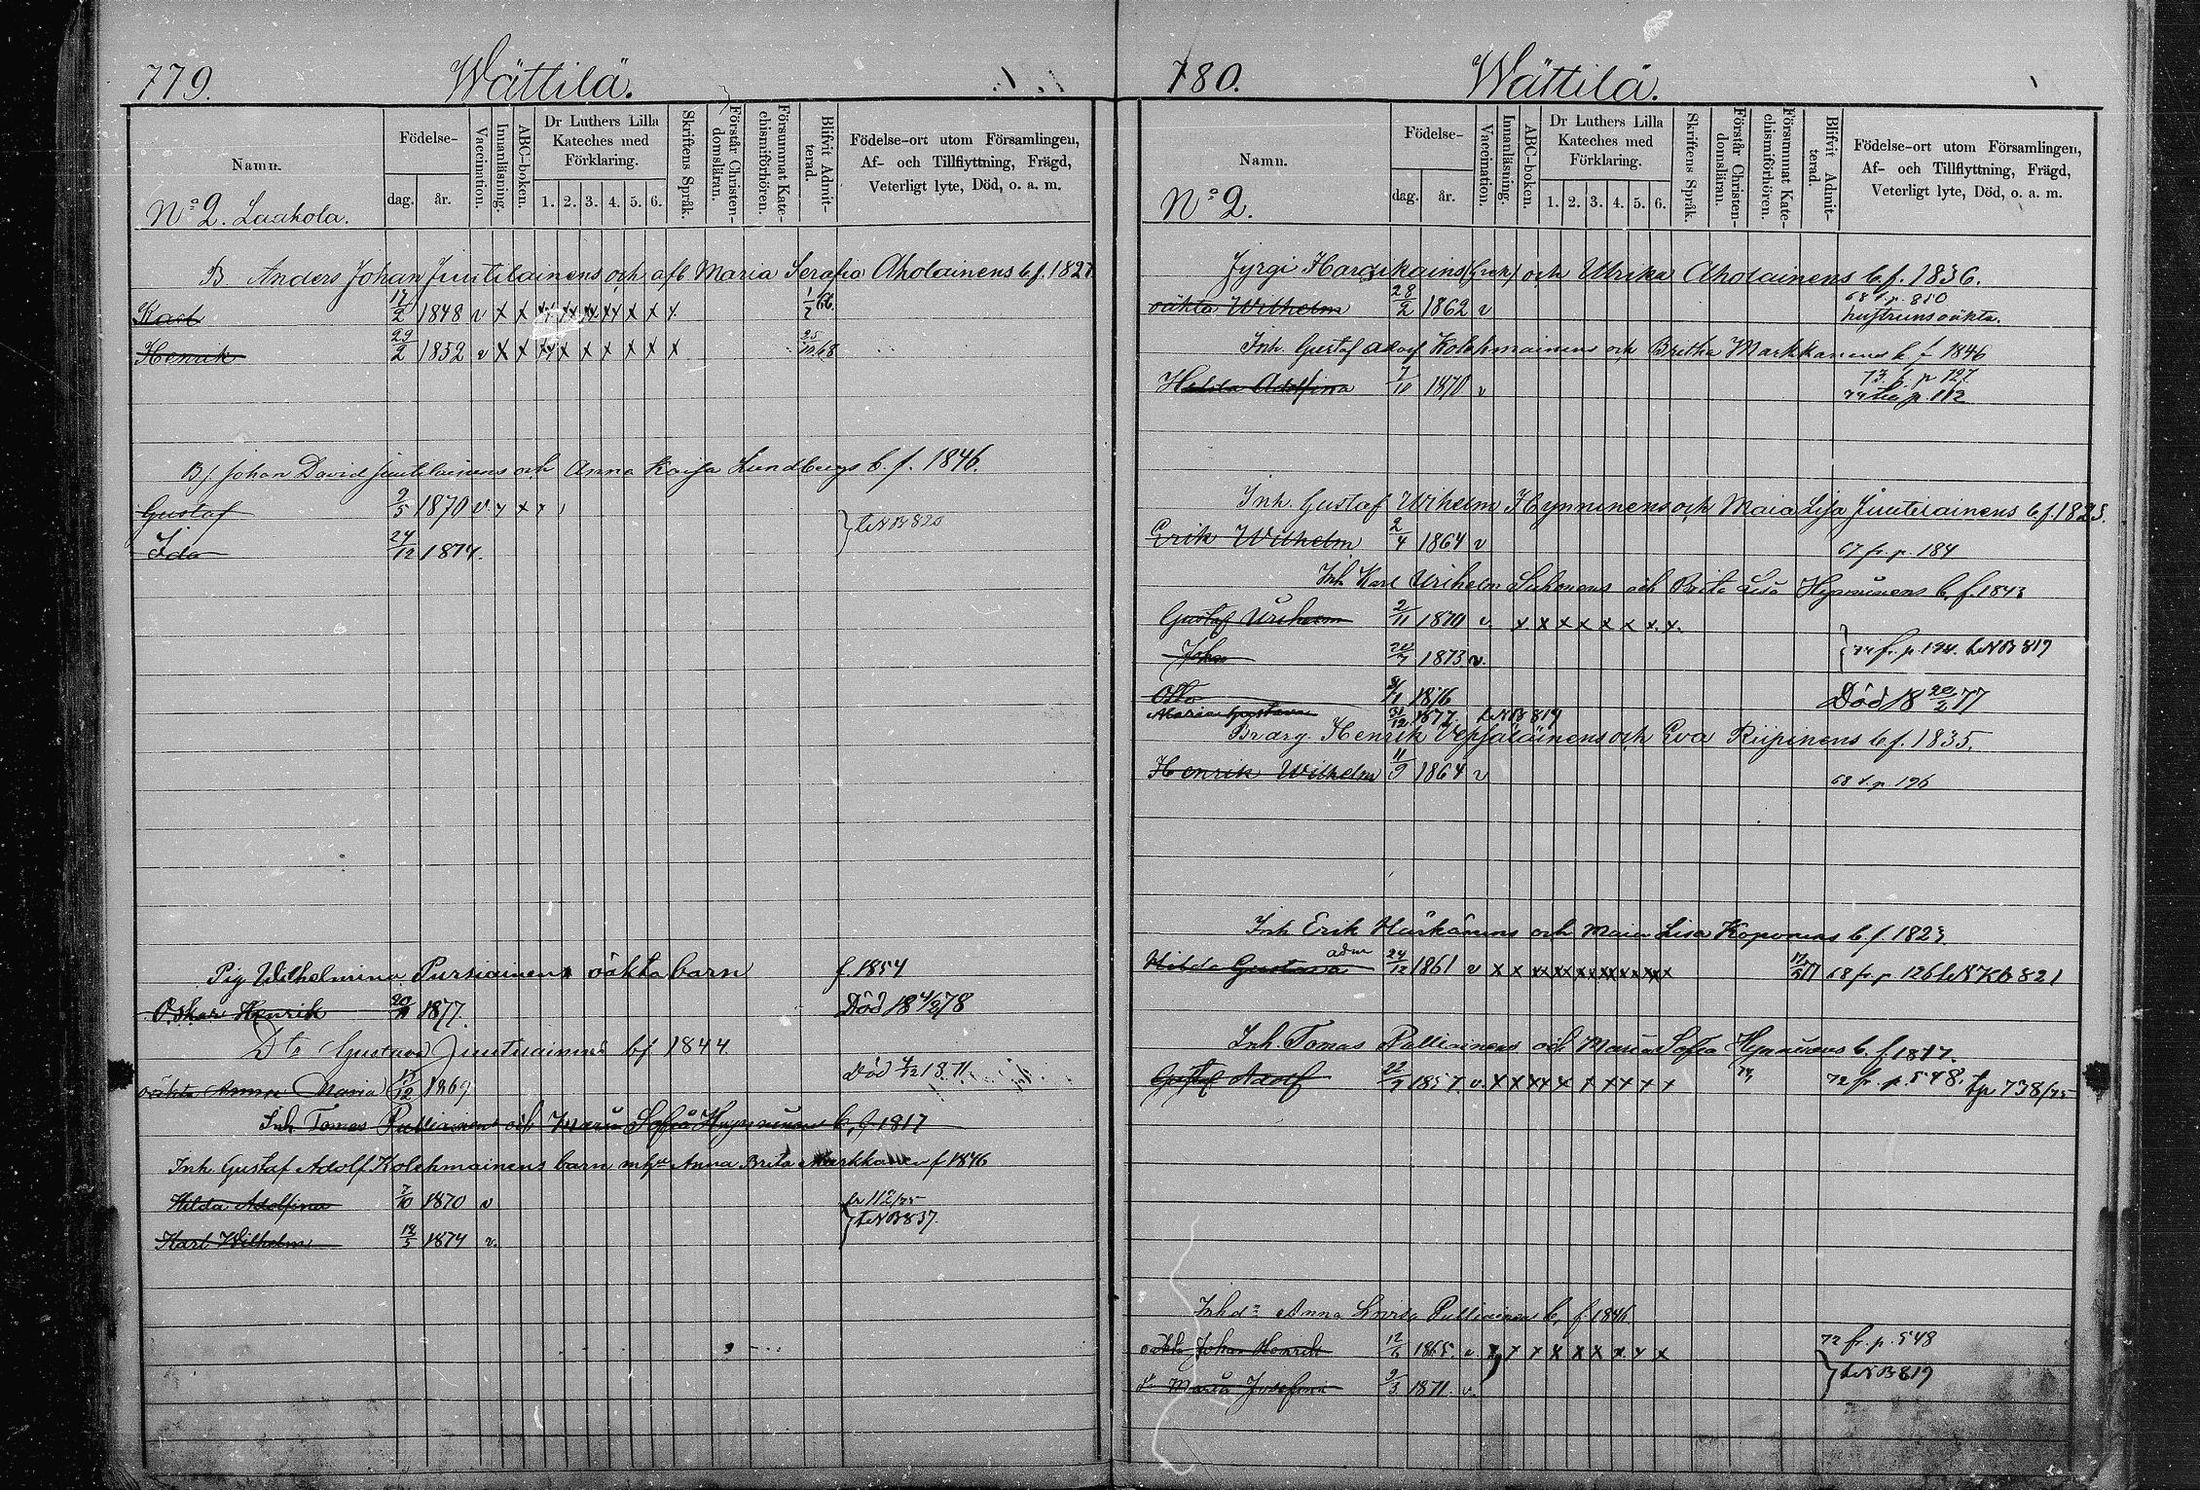 779.
Wättilä.
Namn.
Födelse-
dag.
år.
Vaccination.
Innanläsning.
ABC-boken.
Dr Luthers Lilla Kateches med Förklaring.
1. 2. 3. 4. 5. 6.
Skriftens Språk.
Förstår Christen-domsläran.
Försummat Kate-chismiförhören.
Blifvit Admit-terad.
Födelse-ort utom Församlingen, Af- och Tillflyttning, Frägd, Veterligt lyte, Död, o. a. m.
No 2. Laakola.
B. Anders Johan Juutilainens och afl Maria Serafia Aholainens b f. 1827
Karl 17/2 1848 v x x x x x x x x x
Henrik 29/2 1852 v x x x x x x x x x 68
Bj Johan David Juutilainens och Anna Kaisa Lundbergs b. f. 1846.
Gustaf 2/5 1870 v x x x
Ida 24/12 1874.
Pig Wilhelmina Pursiainens oäkta barn f. 1854
Oskar Henrik 1877. Död 18 4/2 78
Dto Gustava Juutilainens bf 1844.
oäkta Anna Maria 1869
Inh Tomas Pulliainens och Maria Sofia Hynninens b. f 1817
Inh Gustaf Adolf Kolehmainens barn m h. Anna Brita Markkanen f 1846
Hilda Adolfina 7/10 1870 v fr 112/75
Karl Wilhelm 18/5 1874 v.
780.
Wättilä.
Namn.
Födelse-
dag.
år.
Vaccination.
Innanläsning.
ABC-boken.
Dr Luthers Lilla Kateches med Förklaring.
1. 2. 3. 4. 5. 6.
Skriftens Språk.
Förstår Christen-domsläran.
Försummat Kate-chismiförhören.
Blifvit Admit-terad.
Födelse-ort utom Församlingen, Af- och Tillflyttning, Frägd, Veterligt lyte, Död, o. a. m.
No 2.
Jyrgi och Ulrika Aholainens b f. 1836.
oäkta Wilhelm 28/2 1862 v hustruns oäkta.
Inh. Gustaf Adolf Kolehmainens och Britha Markkanens b f 1846
Hilda Adolfina 7/10 1870 v 73 f. p 127.
Inh. Gustaf Wilhelm Hynninens och Maia Lisa Juutilainens b f.
Erik Wilhelm 2/4 1864 v 67 fr. p. 184
Inh Karl Wilhelm och Brita Lisa Hynninens b. f. 1843
Gustaf Wilhelm 2/11 1870 v. x x x x x x x x.
Johan 1873 v.
Otto 1876 Död 18 20/2 77
Maria Gustava 31/12 1877.
Henrik Vepsäläinens och Eva Riipinens b f. 1835.
Henrik Wilhelm 11/9 1864 v 68 t. p. 196
Inh Erik och Maia Lisa Koponens b f. 1823.
adm
Hilda Gustava 24/12 1861 v x x x x x x x x x 68 fr. p 126
Inh. Tomas Pulliainens och Maria Sofia Hynninens b. f. 1817.
Gustaf Adolf 1857. v. x x x x x x x x x 72 fr. p. 548. tp 738/75
Anna Lovisa Pulliainens b, f. 1846
oäkta Johan Henrik 12/6 1865. v x x x x x x x x x 72 fr. p. 548
Maria Josefina 2/3 1871. v.